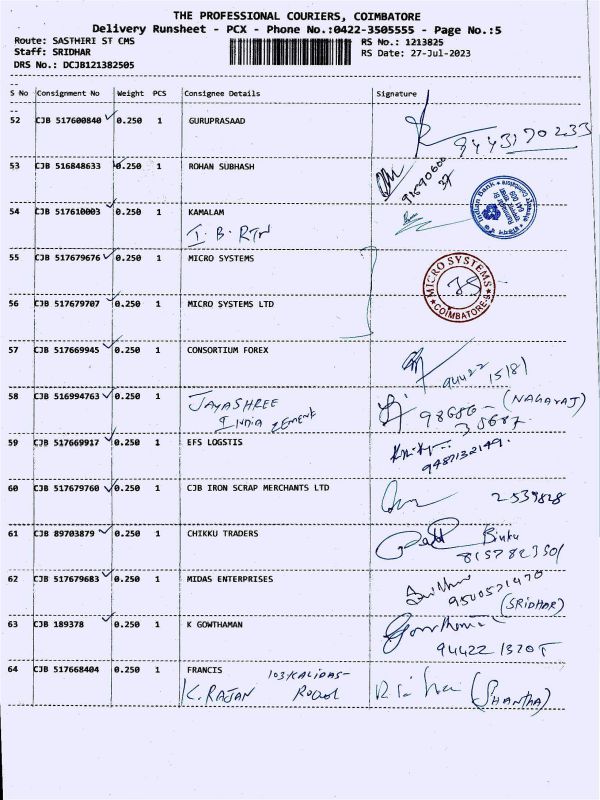 THE PROFESSIONAL COURIERS, COIMBATORE
Delivery Runsheet - PCX - Phone No.:0422-3505555 - Page No.:5
Route: SASTHIRI ST CMS RS No.: 1213825
Staff: SRIDHAR RS Date: 27-Jul-2023
DRS No.: DCJB121382505
S No Consignment No Weight PCS Consignee Details Signature
52 CJB 517600840 0.250 1 GURUPRASAAD
9443170233
53 CJB 516848633 0.250 1 ROHAN SUBHASH
9590600
37
54 CJB 517610003 0.250 1 KAMALAM
I.B. RTN
Indian Bank
55 CJB 517679676 0.250 1 MICRO SYSTEMS
MICRO SYSTEMS
COIMBATORE-9
56 CJB 517679707 0.250 1 MICRO SYSTEMS LTD
57 CJB 517669945 0.250 1 CONSORTIUM FOREX
94422
15181
58 CJB 516994763 0.250 1 JAYASHREE (NAGARAJ)
INDIA CEMENT
98686-
35687
59 CJB 517669917 0.250 1 EFS LOGSTIS
9487132149.
60 CJB 517679760 0.250 1 CJB IRON SCRAP MERCHANTS LTD
2539828
61 CJB 89703879 0.250 1 CHIKKU TRADERS
Binku
62 CJB 517679683 0.250 1 MIDAS ENTERPRISES
9500571470
(SRIDHAR)
63 CJB 189378 0.250 1 K GOWTHAMAN
Gowthaman
94422 13205
64 CJB 517668404 0.250 1 FRANCIS
103/KALIDAS-
K. RAJAN Road (SHANTHA)